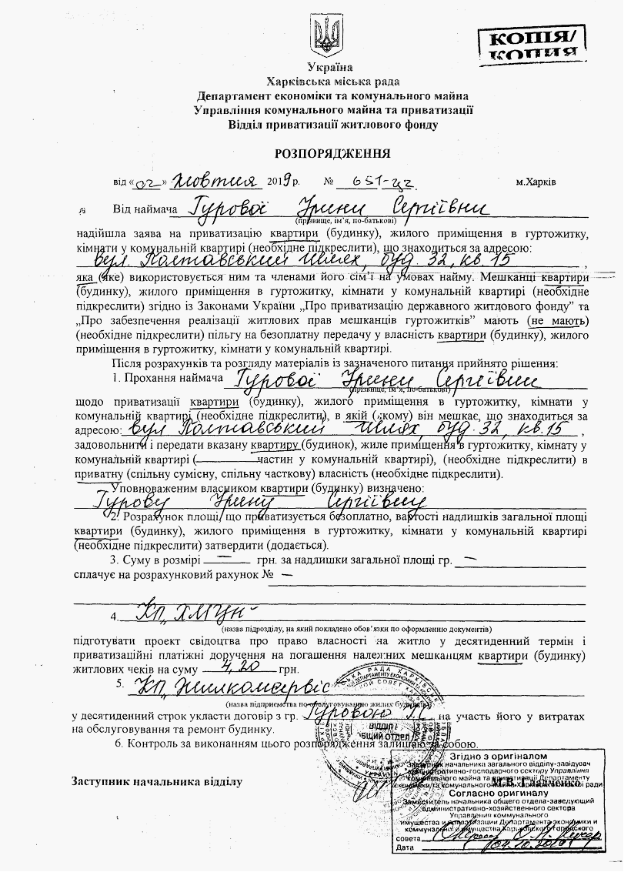 КОПІЯ/
КОПИЯ
Україна
Харківська міська рада
Департамент економіки та комунального майна
Управління комунального майна та приватизації
Відділ приватизації житлового фонду
РОЗПОРЯДЖЕННЯ
від «02» жовтня 2019 р. № 651-цг м.Харків
Від наймача Гурової Ірини Сергіївни
(прізвище, ім'я, по-батькові)
надійшла заява на приватизацію квартири (будинку), жилого приміщення в гуртожитку,
кімнати у комунальній квартирі (необхідне підкреслити), що знаходиться за адресою:
вул. Полтавський Шлях, буд. 32, кв. 15 ,
яка (яке) використовується ним та членами його сім'ї на умовах найму. Мешканці квартири
(будинку), жилого приміщення в гуртожитку, кімнати у комунальній квартирі (необхідне
підкреслити) згідно із Законами України „Про приватизацію державного житлового фонду" та
„Про забезпечення реалізації житлових прав мешканців гуртожитків" мають (не мають)
(необхідне підкреслити) пільгу на безоплатну передачу у власність квартири (будинку), жилого
приміщення в гуртожитку, кімнати у комунальній квартирі.
Після розрахунків та розгляду матеріалів із зазначеного питання прийнято рішення:
1. Прохання наймача Гурової Ірини Сергіївни
(прізвище, ім'я, по-батькові)
щодо приватизації квартири (будинку), жилого приміщення в гуртожитку, кімнати у
комунальній квартирі (необхідне підкреслити), в якій (якому) він мешкає, що знаходиться за
адресою: вул Полтавський Шлях буд. 32, кв. 15 ,
задовольнити і передати вказану квартиру (будинок), жиле приміщення в гуртожитку, кімнату у
комунальній квартирі ( частин у комунальній квартирі), (необхідне підкреслити) в
приватну (спільну сумісну, спільну часткову) власність (необхідне підкреслити).
Уповноваженим власником квартири (будинку) визначено:
Гурову Ірину Сергіївну
2. Розрахунок площі, що приватизується безоплатно, вартості надлишків загальної площі
квартири (будинку), жилого приміщення в гуртожитку, кімнати у комунальній квартирі
(необхідне підкреслити) затвердити (додається).
3. Суму в розмірі — грн. за надлишки загальної площі гр. —
сплачує на розрахунковий рахунок № —
4. КП„ХМЦН"
(назва підрозділу, на який покладено обов'язки по оформленню документів)
підготувати проект свідоцтва про право власності на житло у десятиденний термін і
приватизаційні платіжні доручення на погашення належних мешканцям квартири (будинку)
житлових чеків на суму 4,20 грн.
5. КП„Жилкомсервіс"
(назва підприємства по обслуговуванню жилих будинків)
у десятиденний строк укласти договір з гр. Гуровою І.С. на участь його у витратах
на обслуговування та ремонт будинку.
6. Контроль за виконанням цього розпорядження залишаю за собою.
Заступник начальника відділу
Згідно з оригіналом
Заступник начальника загального відділу-завідувач
адміністративно-господарчого сектору Управління
комунального майна та приватизації Департаменту
економіки та комунального майна Харківської міської ради
Согласно оригиналу
Заместитель начальника общего отдела-заведующий
административно-хозяйственного сектора
Управления коммунального
имущества и приватизации Департамента экономики и
коммунального имущества Харьковского городского
совета
Дата 02.10.2019